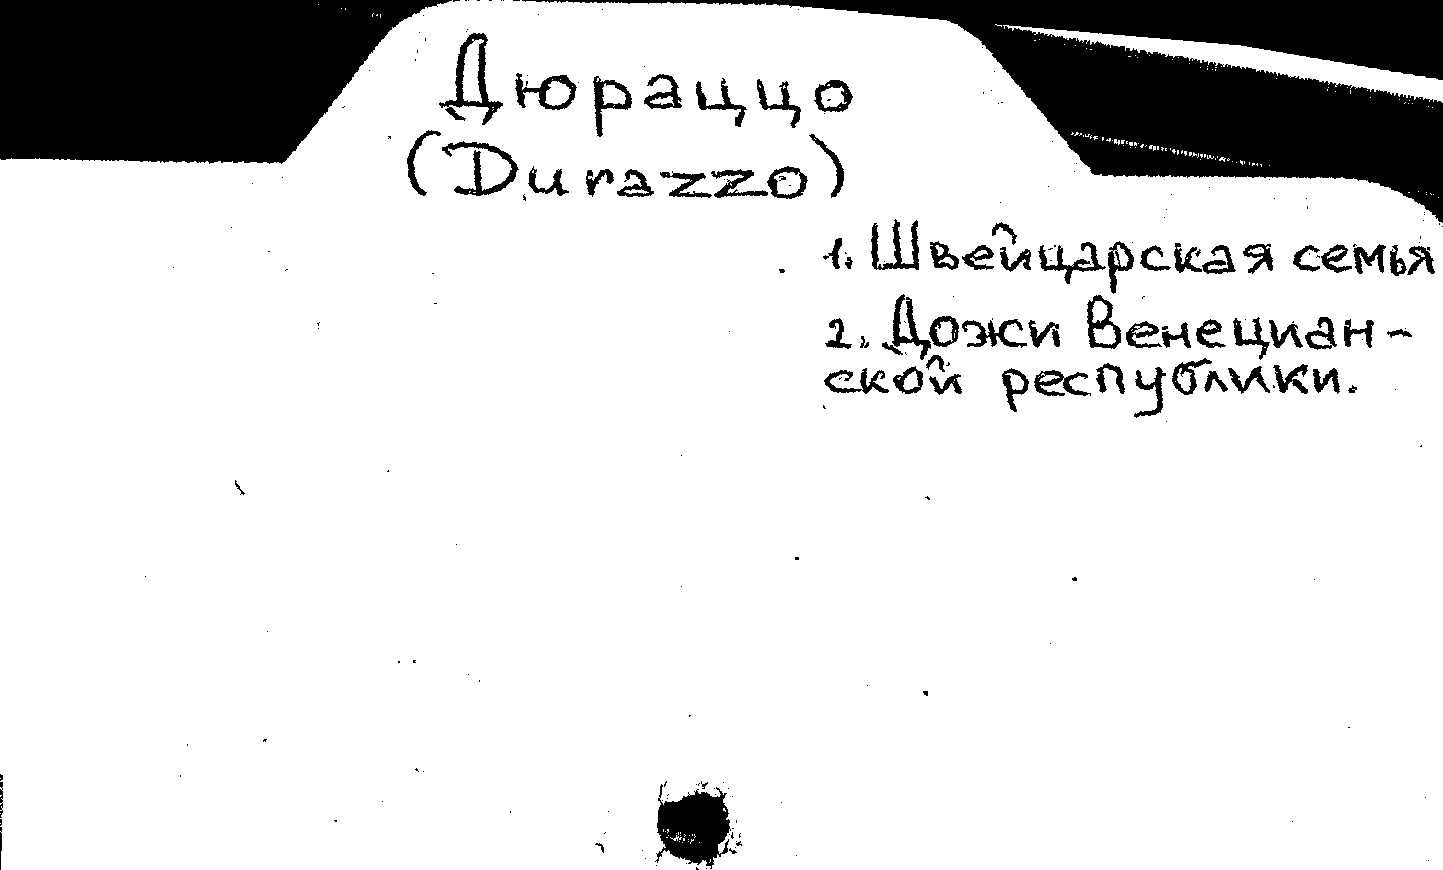 Дюраццо
(Durazzo)
1. Швейцарская семья
2. Дожи Венециан-
ской республики.